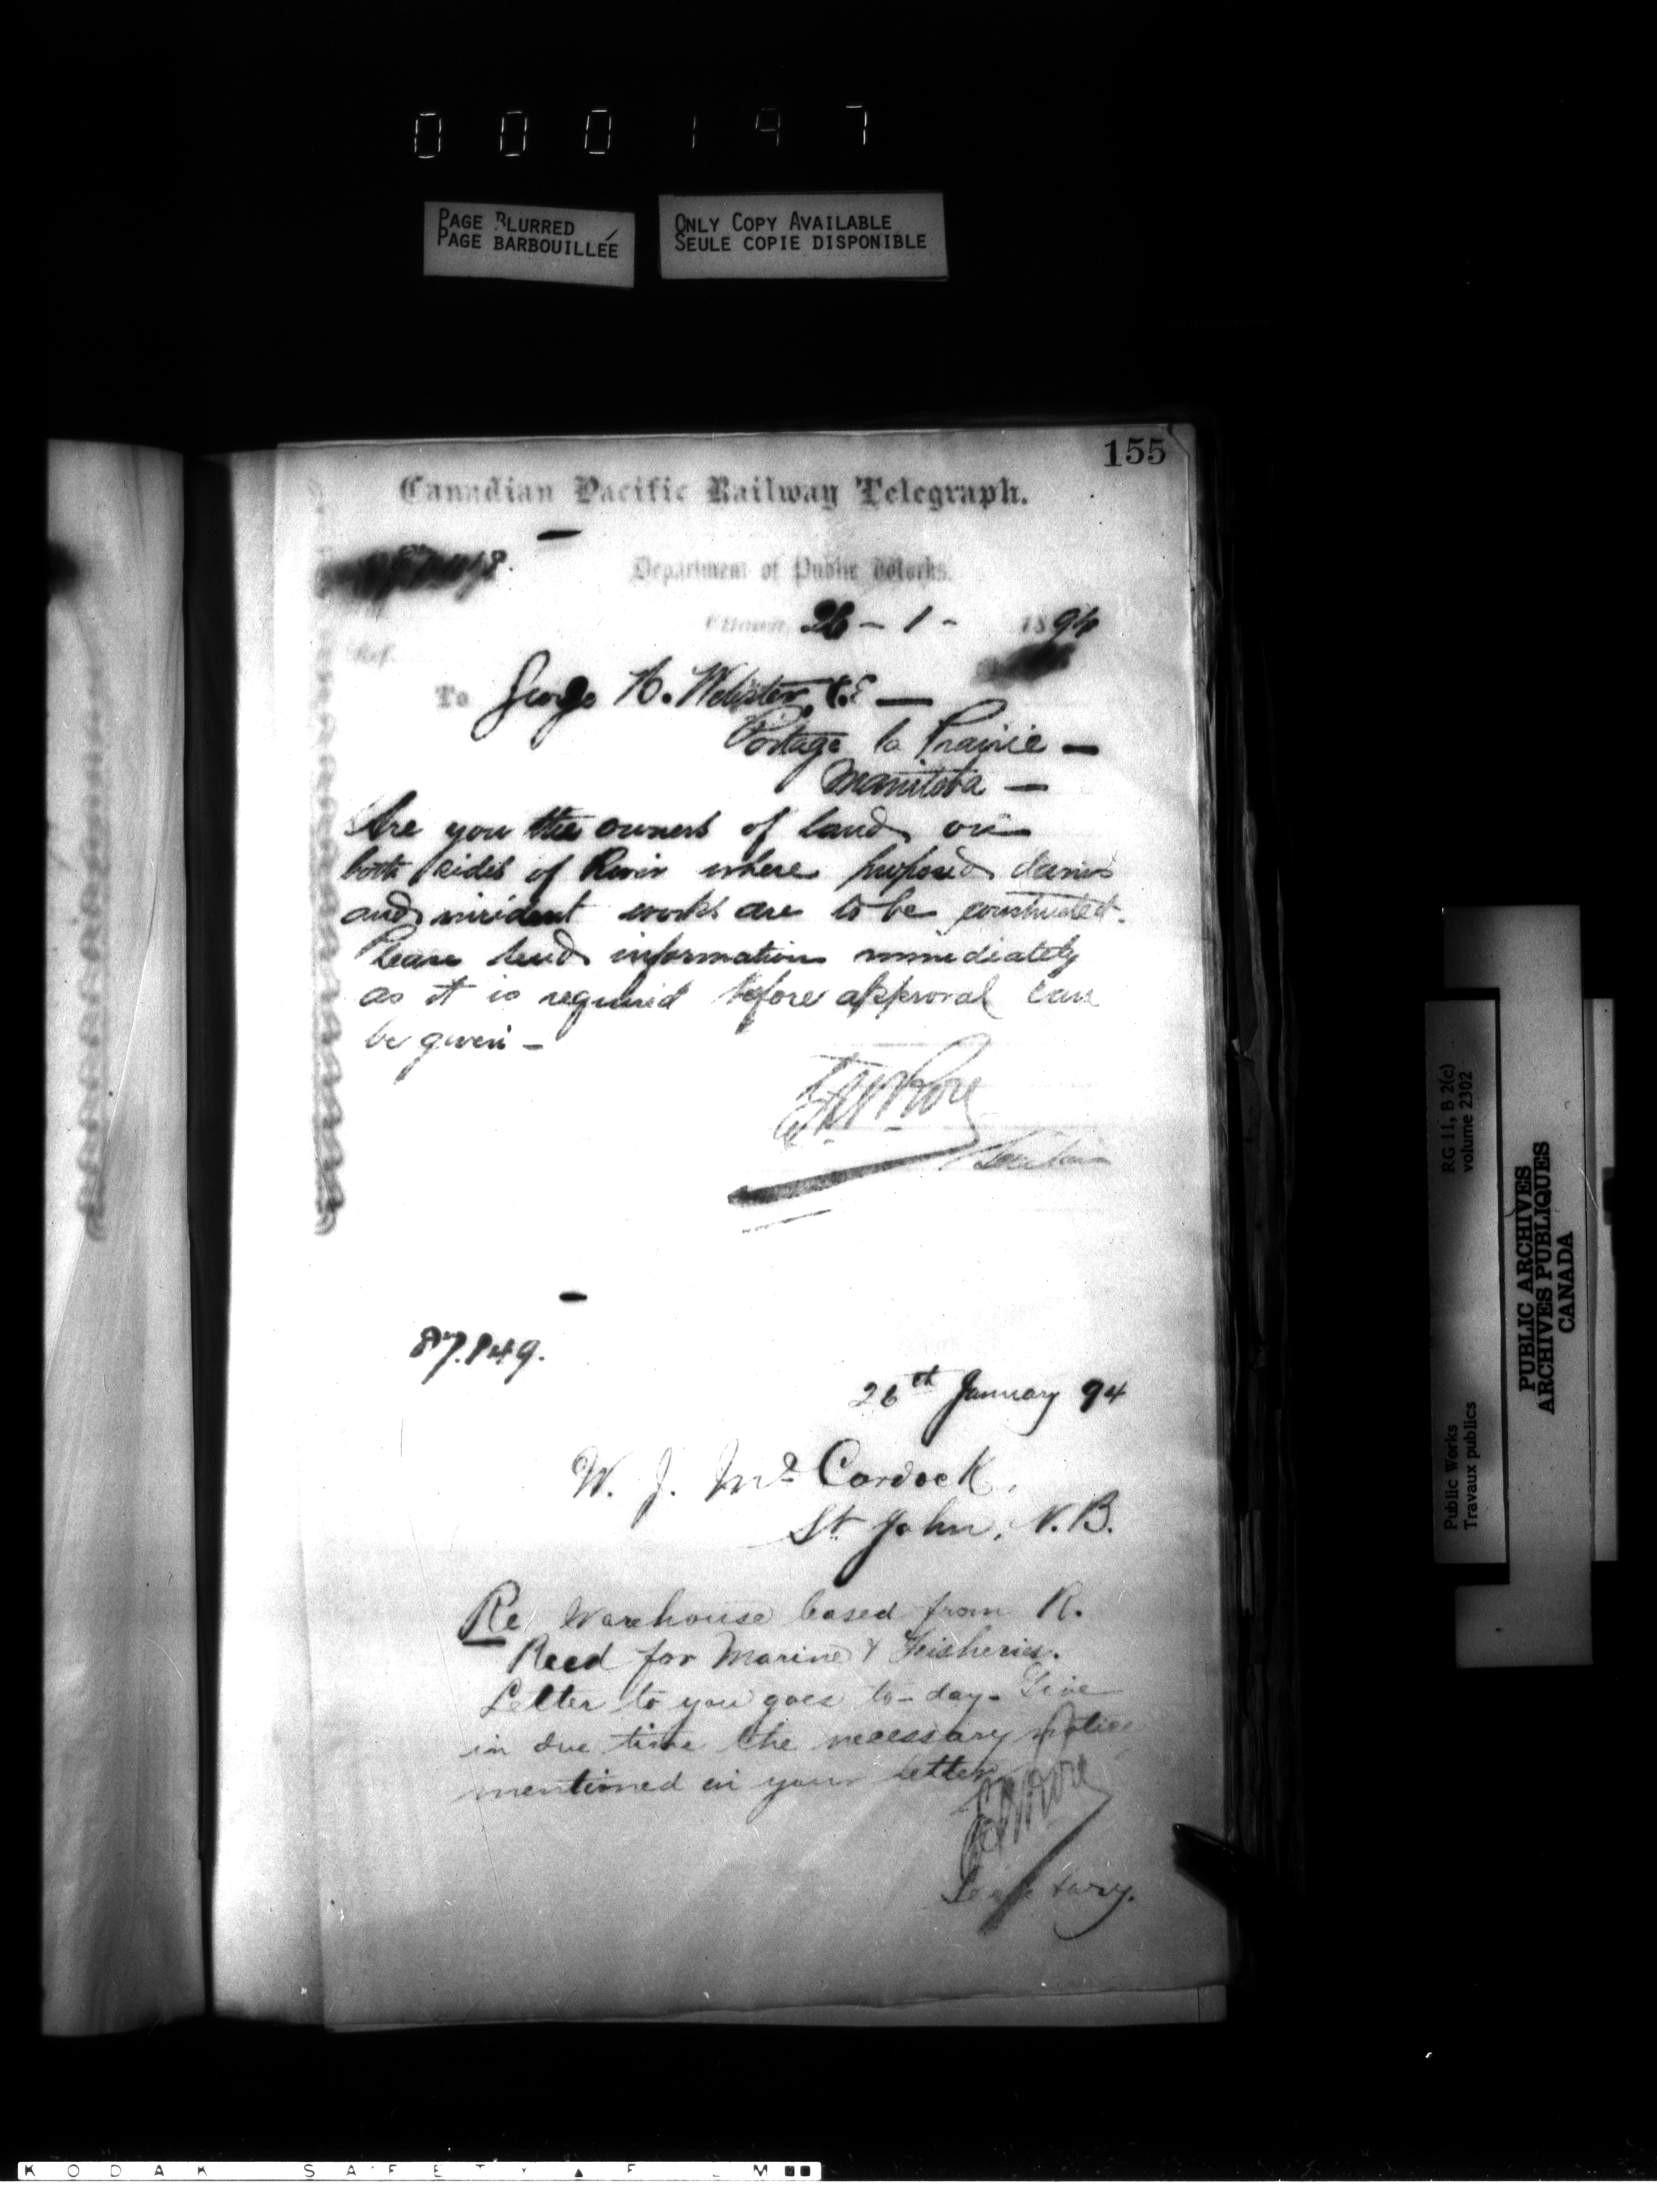 000197
PAGE BLURRED
PAGE BARBOUILLÉE
ONLY COPY AVAILABLE
SEULE COPIE DISPONIBLE
155
Canadian Pacific Railway Telegraph.
Department of Public Works.
Ottawa, 26 - 1 - 1894
Ref.
To George H. Webster, C.E —
Portage la Prairie —
Manitoba —
Are you the owners of land on
both sides of River where proposed dams
and incident works are to be constructed.
Please send information immediately
as it is required before approval can
be given —
Secretary
87.849.
26th January 94
W. J. Mc Cordock,
St John, N.B.
Re Warehouse leased from R.
Reed for Marine & Fisheries.
Letter to you goes to-day. Give
in due time the necessary notice
mentioned in your letter
Secretary.
RG 11, B 2(c)
volume 2302
Public Works
Travaux publics
PUBLIC ARCHIVES
ARCHIVES PUBLIQUES
CANADA
KODAK SAFETY FILM